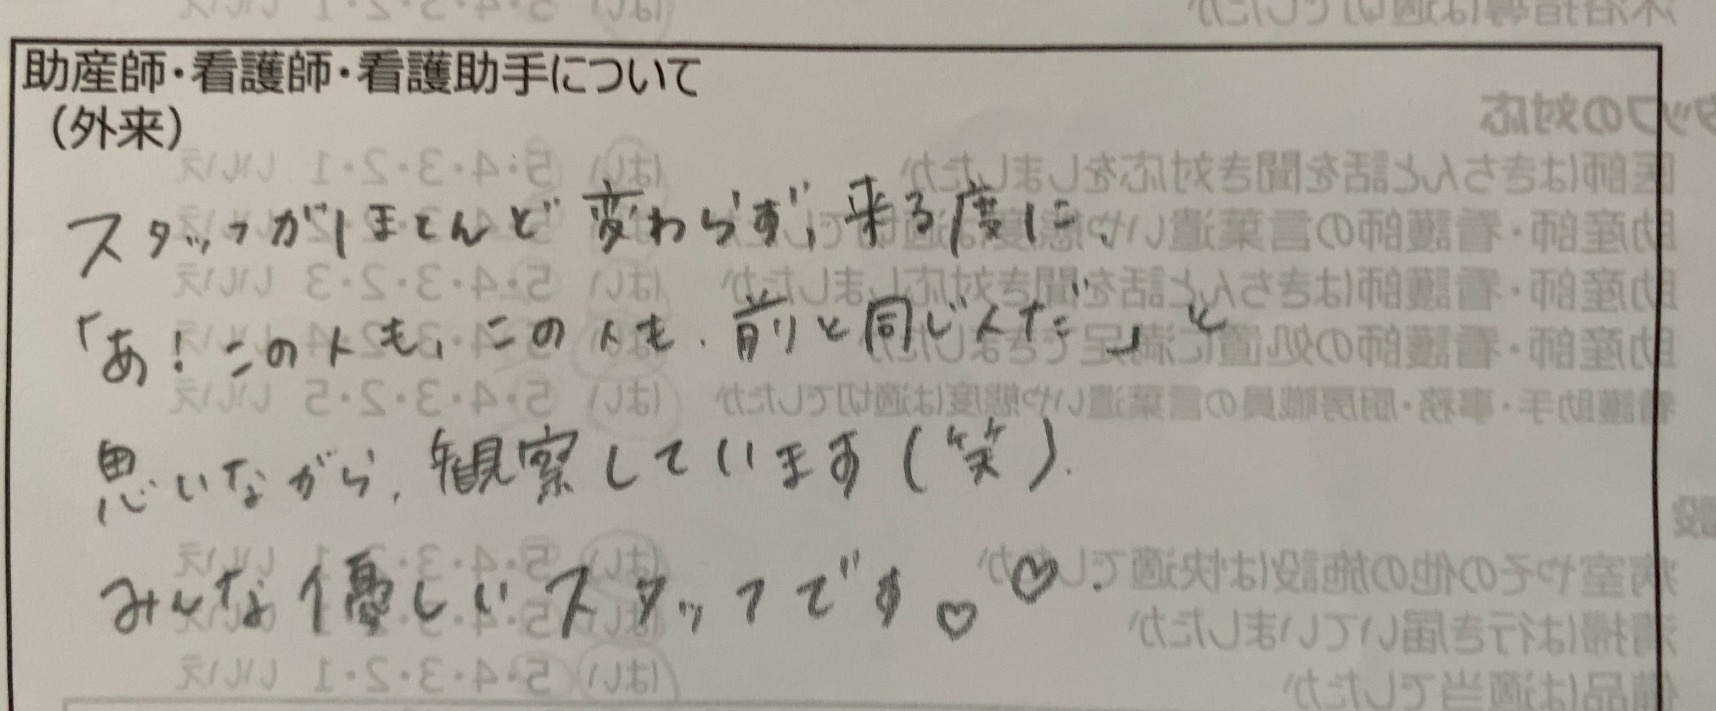 助産師・看護師・看護助手について
（外来）
スタッフがほとんど変わらず、来る度に、
「あ！この人も、この人も、前と同じ人だ」と
思いながら、観察しています（笑）.
みんな優しいスタッフです。♡♡.